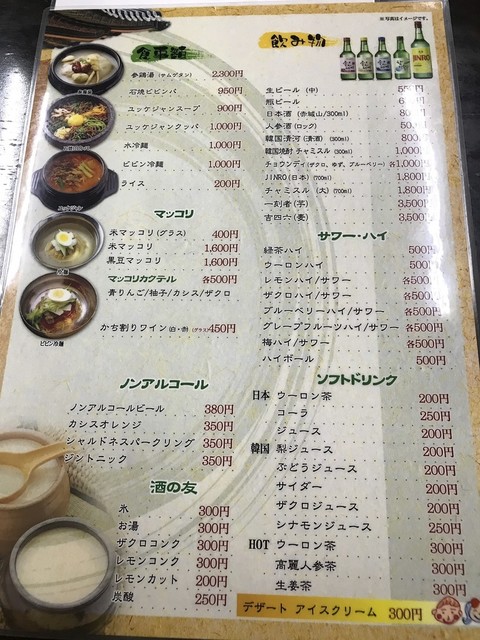 ※写真はイメージです。
食事類
参鶏湯 (サムゲタン) 2,300円
石焼ビビンバ 950円
ユッケジャンスープ 900円
ユッケジャンクッパ 1,000円
水冷麺 1,000円
ビビン冷麺 1,000円
ライス 200円
ビビン冷麺
マッコリ
米マッコリ (グラス) 400円
米マッコリ 1,600円
黒豆マッコリ 1,600円
マッコリカクテル 各500円
青りんご/柚子/カシス/ザクロ
かち割りワイン (白・赤) (グラス) 450円
ノンアルコール
ノンアルコールビール 380円
カシスオレンジ 350円
シャルドネスパークリング 350円
ジントニック 350円
酒の友
氷 300円
お湯 300円
ザクロコンク 300円
レモンコンク 300円
レモンカット 200円
炭酸 250円
飲み物
JINRO
生ビール (中)
瓶ビール
日本酒 (赤城山/300ml)
人参酒 (ロック)
韓国清河 (清酒) (300ml) 800円
韓国焼酎 チャミスル (360ml) 1,000円
チョウンディ (ザクロ、ゆず、ブルーベリー) 各1,000円
JINRO (日本) (700ml) 1,800円
チャミスル (大) (700ml) 1,800円
一刻者 (芋) 3,500円
吉四六 (麦) 3,500円
サワー・ハイ
緑茶ハイ 500円
ウーロンハイ 500円
レモンハイ/サワー 各500円
ザクロハイ/サワー 各500円
ブルーベリーハイ/サワー 各500円
グレープフルーツハイ/サワー 各500円
梅ハイ/サワー 各500円
ハイボール 500円
ソフトドリンク
日本 ウーロン茶 200円
コーラ 250円
ジュース 200円
韓国 梨ジュース 200円
ぶどうジュース 200円
サイダー 200円
ザクロジュース 200円
シナモンジュース 250円
HOT ウーロン茶 300円
高麗人参茶 300円
生姜茶 300円
デザート アイスクリーム 300円